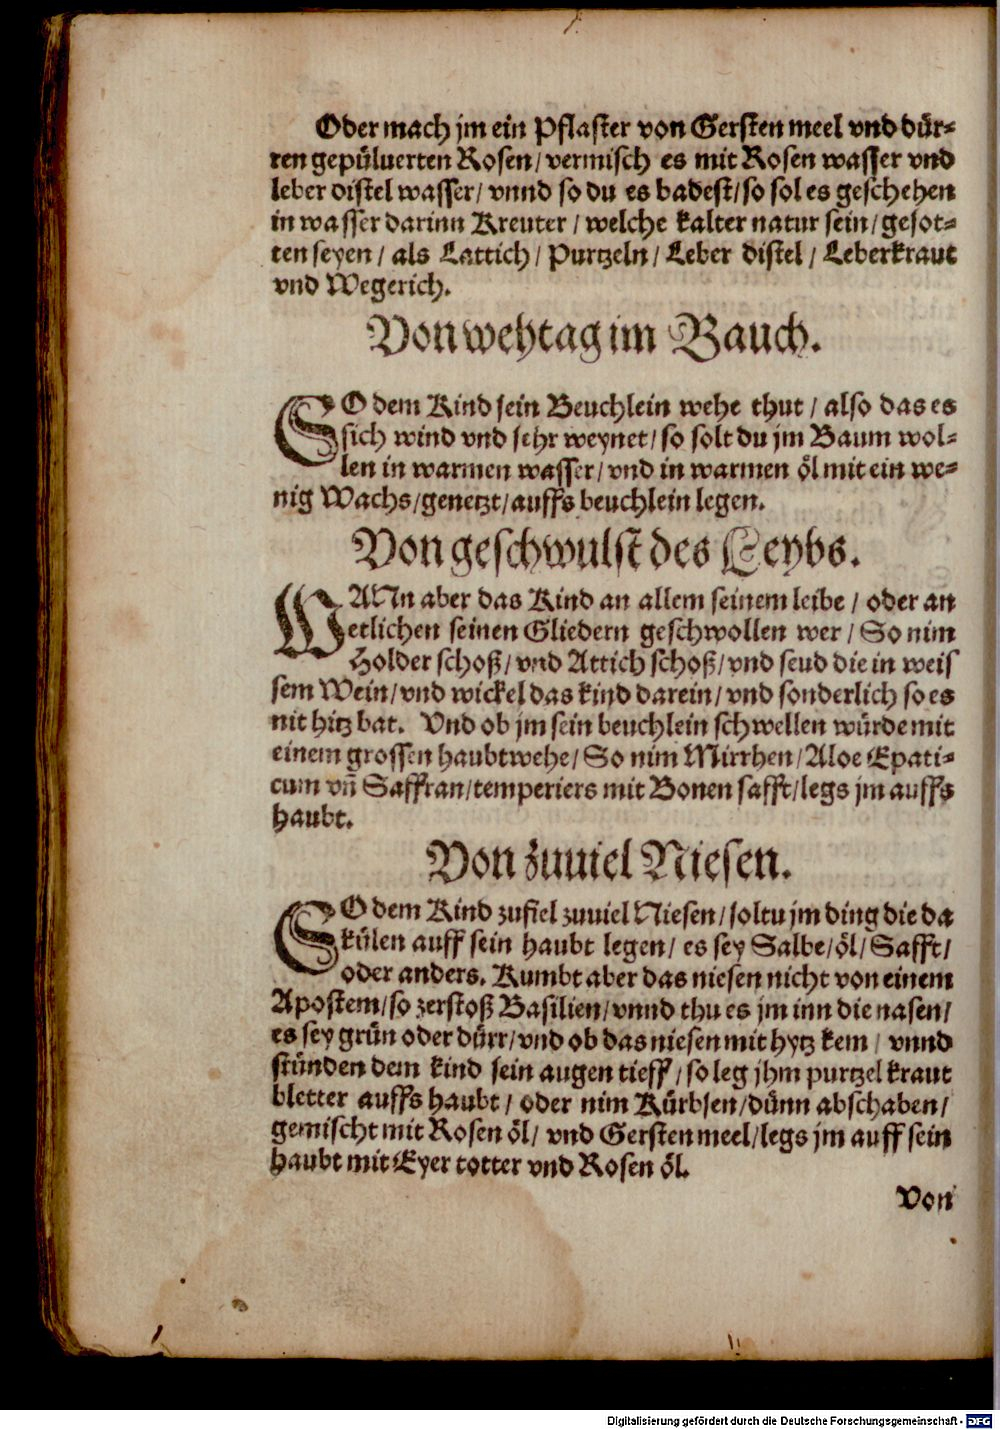 Oder mach jm ein Pflaster von Gersten meel vnd dür-
ren gepüluerten Rosen/ vermisch es mit Rosen wasser vnd
leber distel wasser/ vnnd so du es badest/ so sol es geschehen
in wasser darinn Kreuter / welche kalter natur sein/ gesot-
ten seyen / als Lattich / Purtzeln / Leber distel / Leberkraut
vnd Wegerich.
Von wehtag im Bauch.
SO dem Kind sein Beuchlein wehe thut / also das es
sich wind vnd sehr weynet/ so solt du jm Baum wol-
len in warmen wasser/ vnd in warmen öl mit ein we-
nig Wachs/ genetzt/ auffs beuchlein legen.
Von geschwulst des Leybs.
WANn aber das Kind an allem seinem leibe / oder an
etlichen seinen Gliedern geschwollen wer / So nim
Holder schoß/ vnd Attich schoß/ vnd seud die in weis
sem Wein/ vnd wickel das kind darein/ vnd sonderlich so es
nit hitz hat. Vnd ob jm sein beuchlein schwellen würde mit
einem grossen haubtwehe/ So nim Mirrhen/ Aloe Epati-
cum vñ Saffran/ temperiers mit Bonen safft/ legs jm auffs
haubt.
Von zuuiel Niesen.
SO dem Kind zufiel zuuiel Niesen/ soltu jm ding die da
külen auff sein haubt legen/ es sey Salbe/ öl/ Safft/
oder anders. Kumbt aber das niesen nicht von einem
Apostem/ so zerstoß Basilien/ vnnd thu es jm inn die nasen/
es sey grün oder dürr/ vnd ob das niesen mit hytz kem / vnnd
stünden dem kind sein augen tieff / so leg jhm purtzel kraut
bletter auffs haubt / oder nim Kürbsen/ dünn abschaben/
gemischt mit Rosen öl/ vnd Gersten meel/ legs jm auff sein
haubt mit Eyer totter vnd Rosen öl.
Von
Digitalisierung gefördert durch die Deutsche Forschungsgemeinschaft - DFG